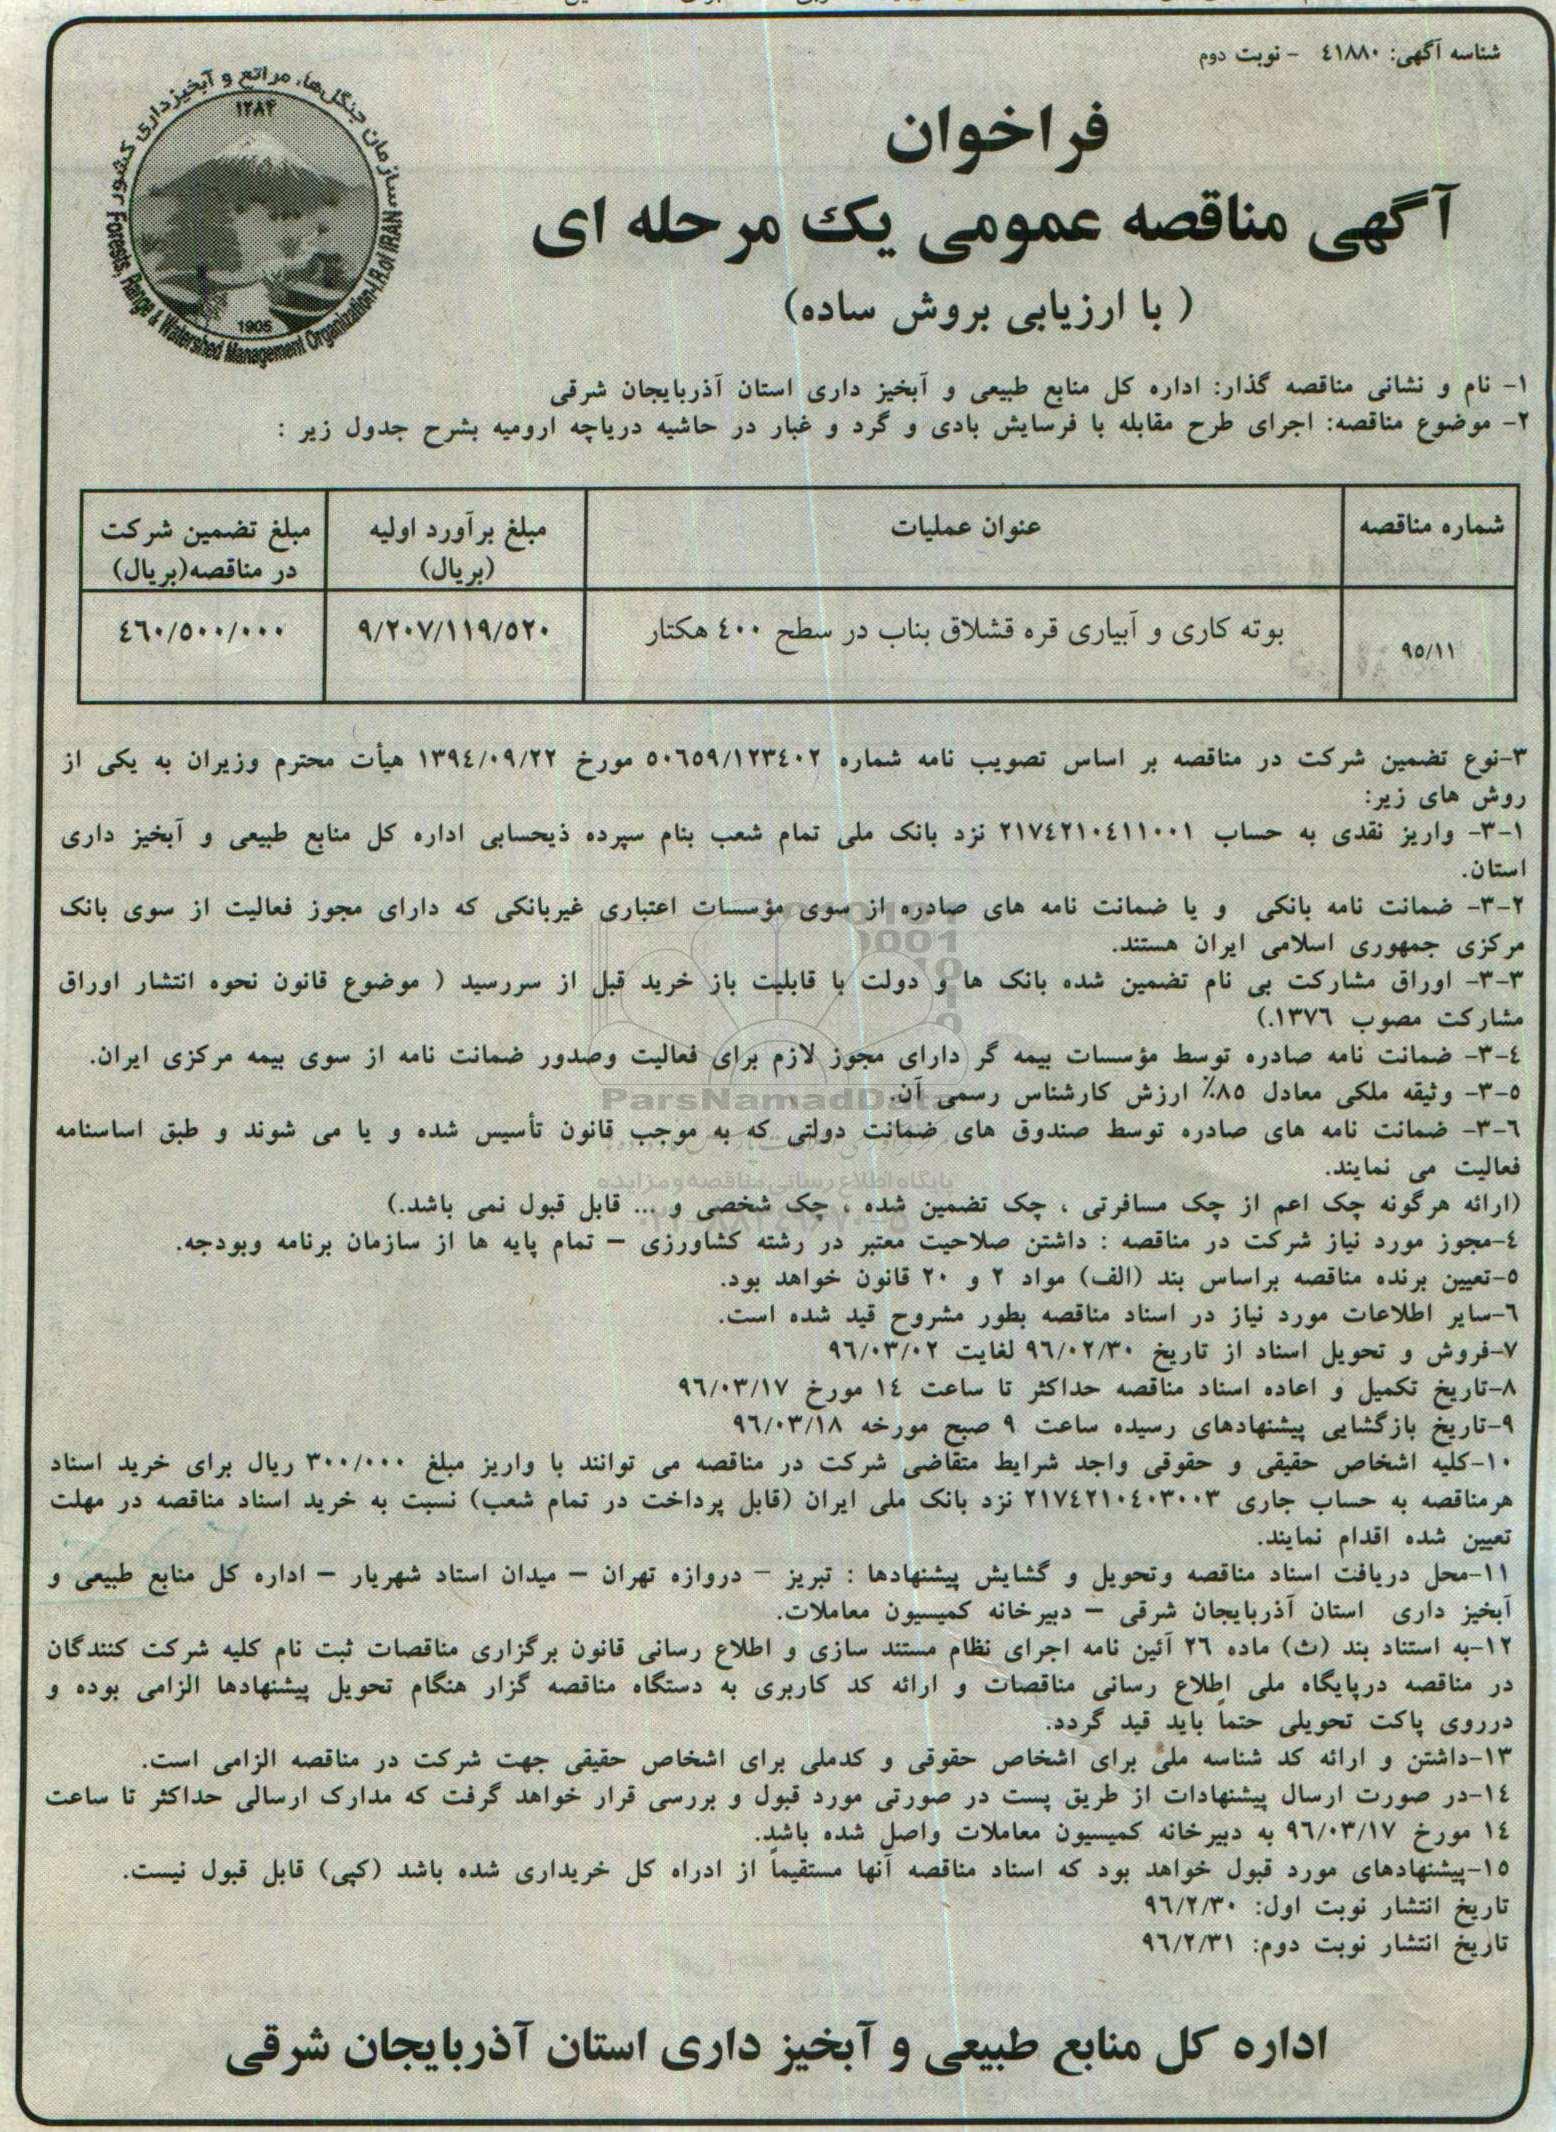 شناسه آگهی: ٤١٨٨٠ - نوبت دوم
سازمان جنگل‌ها، مراتع و آبخیزداری کشور
۱۲۸۴
1905
Forests, Range & Watershed Management Organization-I.R.of IRAN
فراخوان
آگهی مناقصه عمومی یک مرحله ای
( با ارزیابی بروش ساده)
١- نام و نشانی مناقصه گذار: اداره کل منابع طبیعی و آبخیز داری استان آذربایجان شرقی
٢- موضوع مناقصه: اجرای طرح مقابله با فرسایش بادی و گرد و غبار در حاشیه دریاچه ارومیه بشرح جدول زیر :
شماره مناقصه
عنوان عملیات
مبلغ برآورد اولیه
(بریال)
مبلغ تضمین شرکت
در مناقصه(بریال)
٩٥/١١
بوته کاری و آبیاری قره قشلاق بناب در سطح ٤٠٠ هکتار
٩/٢٠٧/١١٩/٥٢٠
٤٦٠/٥٠٠/٠٠٠
٣-نوع تضمین شرکت در مناقصه بر اساس تصویب نامه شماره ٥٠٦٥٩/١٢٣٤٠٢ مورخ ١٣٩٤/٠٩/٢٢ هیأت محترم وزیران به یکی از
روش های زیر:
٣-١- واریز نقدی به حساب ٢١٧٤٢١٠٤١١٠٠١ نزد بانک ملی تمام شعب بنام سپرده ذیحسابی اداره کل منابع طبیعی و آبخیز داری
استان.
٣-٢- ضمانت نامه بانکی و یا ضمانت نامه های صادره از سوی مؤسسات اعتباری غیربانکی که دارای مجوز فعالیت از سوی بانک
مرکزی جمهوری اسلامی ایران هستند.
٣-٣- اوراق مشارکت بی نام تضمین شده بانک ها و دولت با قابلیت باز خرید قبل از سررسید ( موضوع قانون نحوه انتشار اوراق
مشارکت مصوب ١٣٧٦.)
٣-٤- ضمانت نامه صادره توسط مؤسسات بیمه گر دارای مجوز لازم برای فعالیت وصدور ضمانت نامه از سوی بیمه مرکزی ایران.
٣-٥- وثیقه ملکی معادل ٨٥٪ ارزش کارشناس رسمی آن.
ParsNamadData
٣-٦- ضمانت نامه های صادره توسط صندوق های ضمانت دولتی که به موجب قانون تأسیس شده و یا می شوند و طبق اساسنامه
فعالیت می نمایند.
پایگاه اطلاع رسانی مناقصه و مزایده
(ارائه هرگونه چک اعم از چک مسافرتی ، چک تضمین شده ، چک شخصی و ... قابل قبول نمی باشد.)
٤-مجوز مورد نیاز شرکت در مناقصه : داشتن صلاحیت معتبر در رشته کشاورزی – تمام پایه ها از سازمان برنامه وبودجه.
٥-تعیین برنده مناقصه براساس بند (الف) مواد ٢ و ٢٠ قانون خواهد بود.
٦-سایر اطلاعات مورد نیاز در اسناد مناقصه بطور مشروح قید شده است.
٧-فروش و تحویل اسناد از تاریخ ٩٦/٠٢/٣٠ لغایت ٩٦/٠٣/٠٢
٨-تاریخ تکمیل و اعاده اسناد مناقصه حداکثر تا ساعت ١٤ مورخ ٩٦/٠٣/١٧
٩-تاریخ بازگشایی پیشنهادهای رسیده ساعت ٩ صبح مورخه ٩٦/٠٣/١٨
١٠-کلیه اشخاص حقیقی و حقوقی واجد شرایط متقاضی شرکت در مناقصه می توانند با واریز مبلغ ٣٠٠/٠٠٠ ریال برای خرید اسناد
هرمناقصه به حساب جاری ٢١٧٤٢١٠٤٠٣٠٠٣ نزد بانک ملی ایران (قابل پرداخت در تمام شعب) نسبت به خرید اسناد مناقصه در مهلت
تعیین شده اقدام نمایند.
١١-محل دریافت اسناد مناقصه وتحویل و گشایش پیشنهادها : تبریز – دروازه تهران – میدان استاد شهریار – اداره کل منابع طبیعی و
آبخیز داری استان آذربایجان شرقی – دبیرخانه کمیسیون معاملات.
١٢-به استناد بند (ث) ماده ٢٦ آئین نامه اجرای نظام مستند سازی و اطلاع رسانی قانون برگزاری مناقصات ثبت نام کلیه شرکت کنندگان
در مناقصه درپایگاه ملی اطلاع رسانی مناقصات و ارائه کد کاربری به دستگاه مناقصه گزار هنگام تحویل پیشنهادها الزامی بوده و
درروی پاکت تحویلی حتماً باید قید گردد.
١٣-داشتن و ارائه کد شناسه ملی برای اشخاص حقوقی و کدملی برای اشخاص حقیقی جهت شرکت در مناقصه الزامی است.
١٤-در صورت ارسال پیشنهادات از طریق پست در صورتی مورد قبول و بررسی قرار خواهد گرفت که مدارک ارسالی حداکثر تا ساعت
١٤ مورخ ٩٦/٠٣/١٧ به دبیرخانه کمیسیون معاملات واصل شده باشد.
١٥-پیشنهادهای مورد قبول خواهد بود که اسناد مناقصه آنها مستقیماً از ادراه کل خریداری شده باشد (کپی) قابل قبول نیست.
تاریخ انتشار نوبت اول: ٩٦/٢/٣٠
تاریخ انتشار نوبت دوم: ٩٦/٢/٣١
اداره کل منابع طبیعی و آبخیز داری استان آذربایجان شرقی